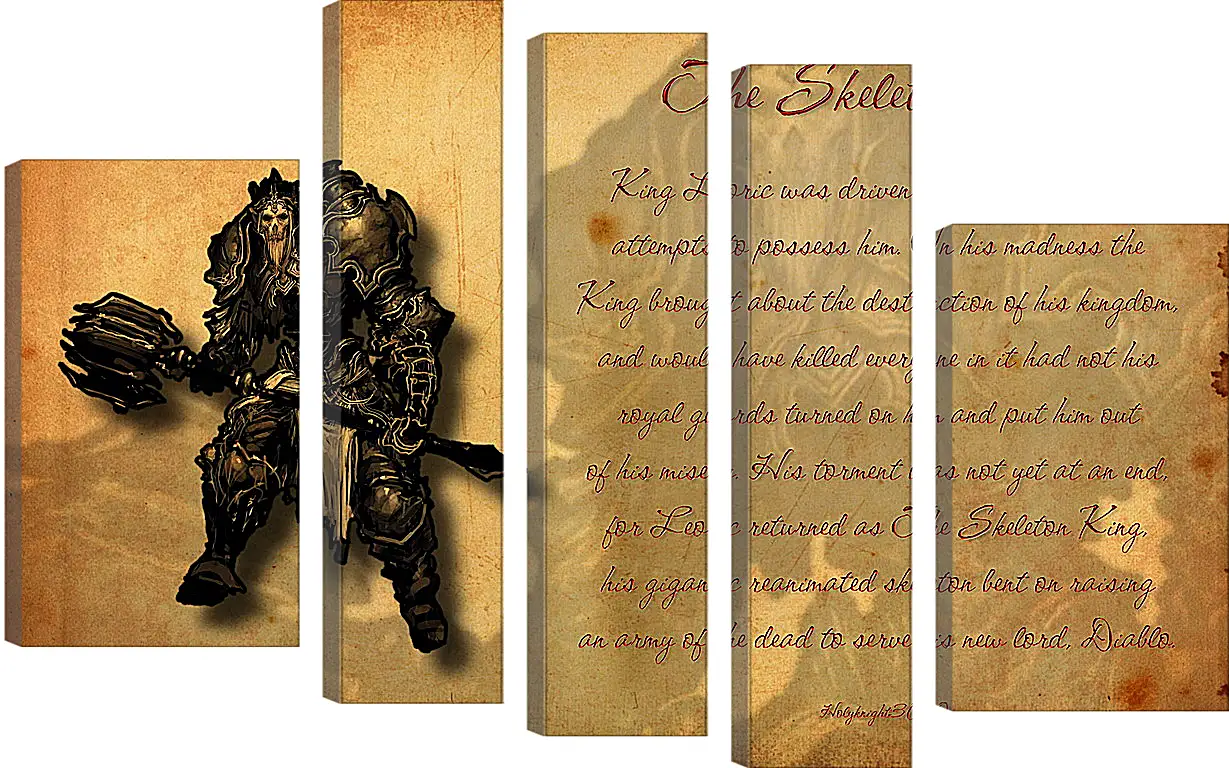 The Skelet
King Leoric was driven
attempts to possess him. In his madness the
King brought about the destruction of his kingdom,
and would have killed everyone in it had not his
royal guards turned on him and put him out
of his misery. His torment was not yet at an end,
for Leoric returned as The Skeleton King,
his gigantic reanimated skeleton bent on raising
an army of the dead to serve his new lord, Diablo.
Holyknight3